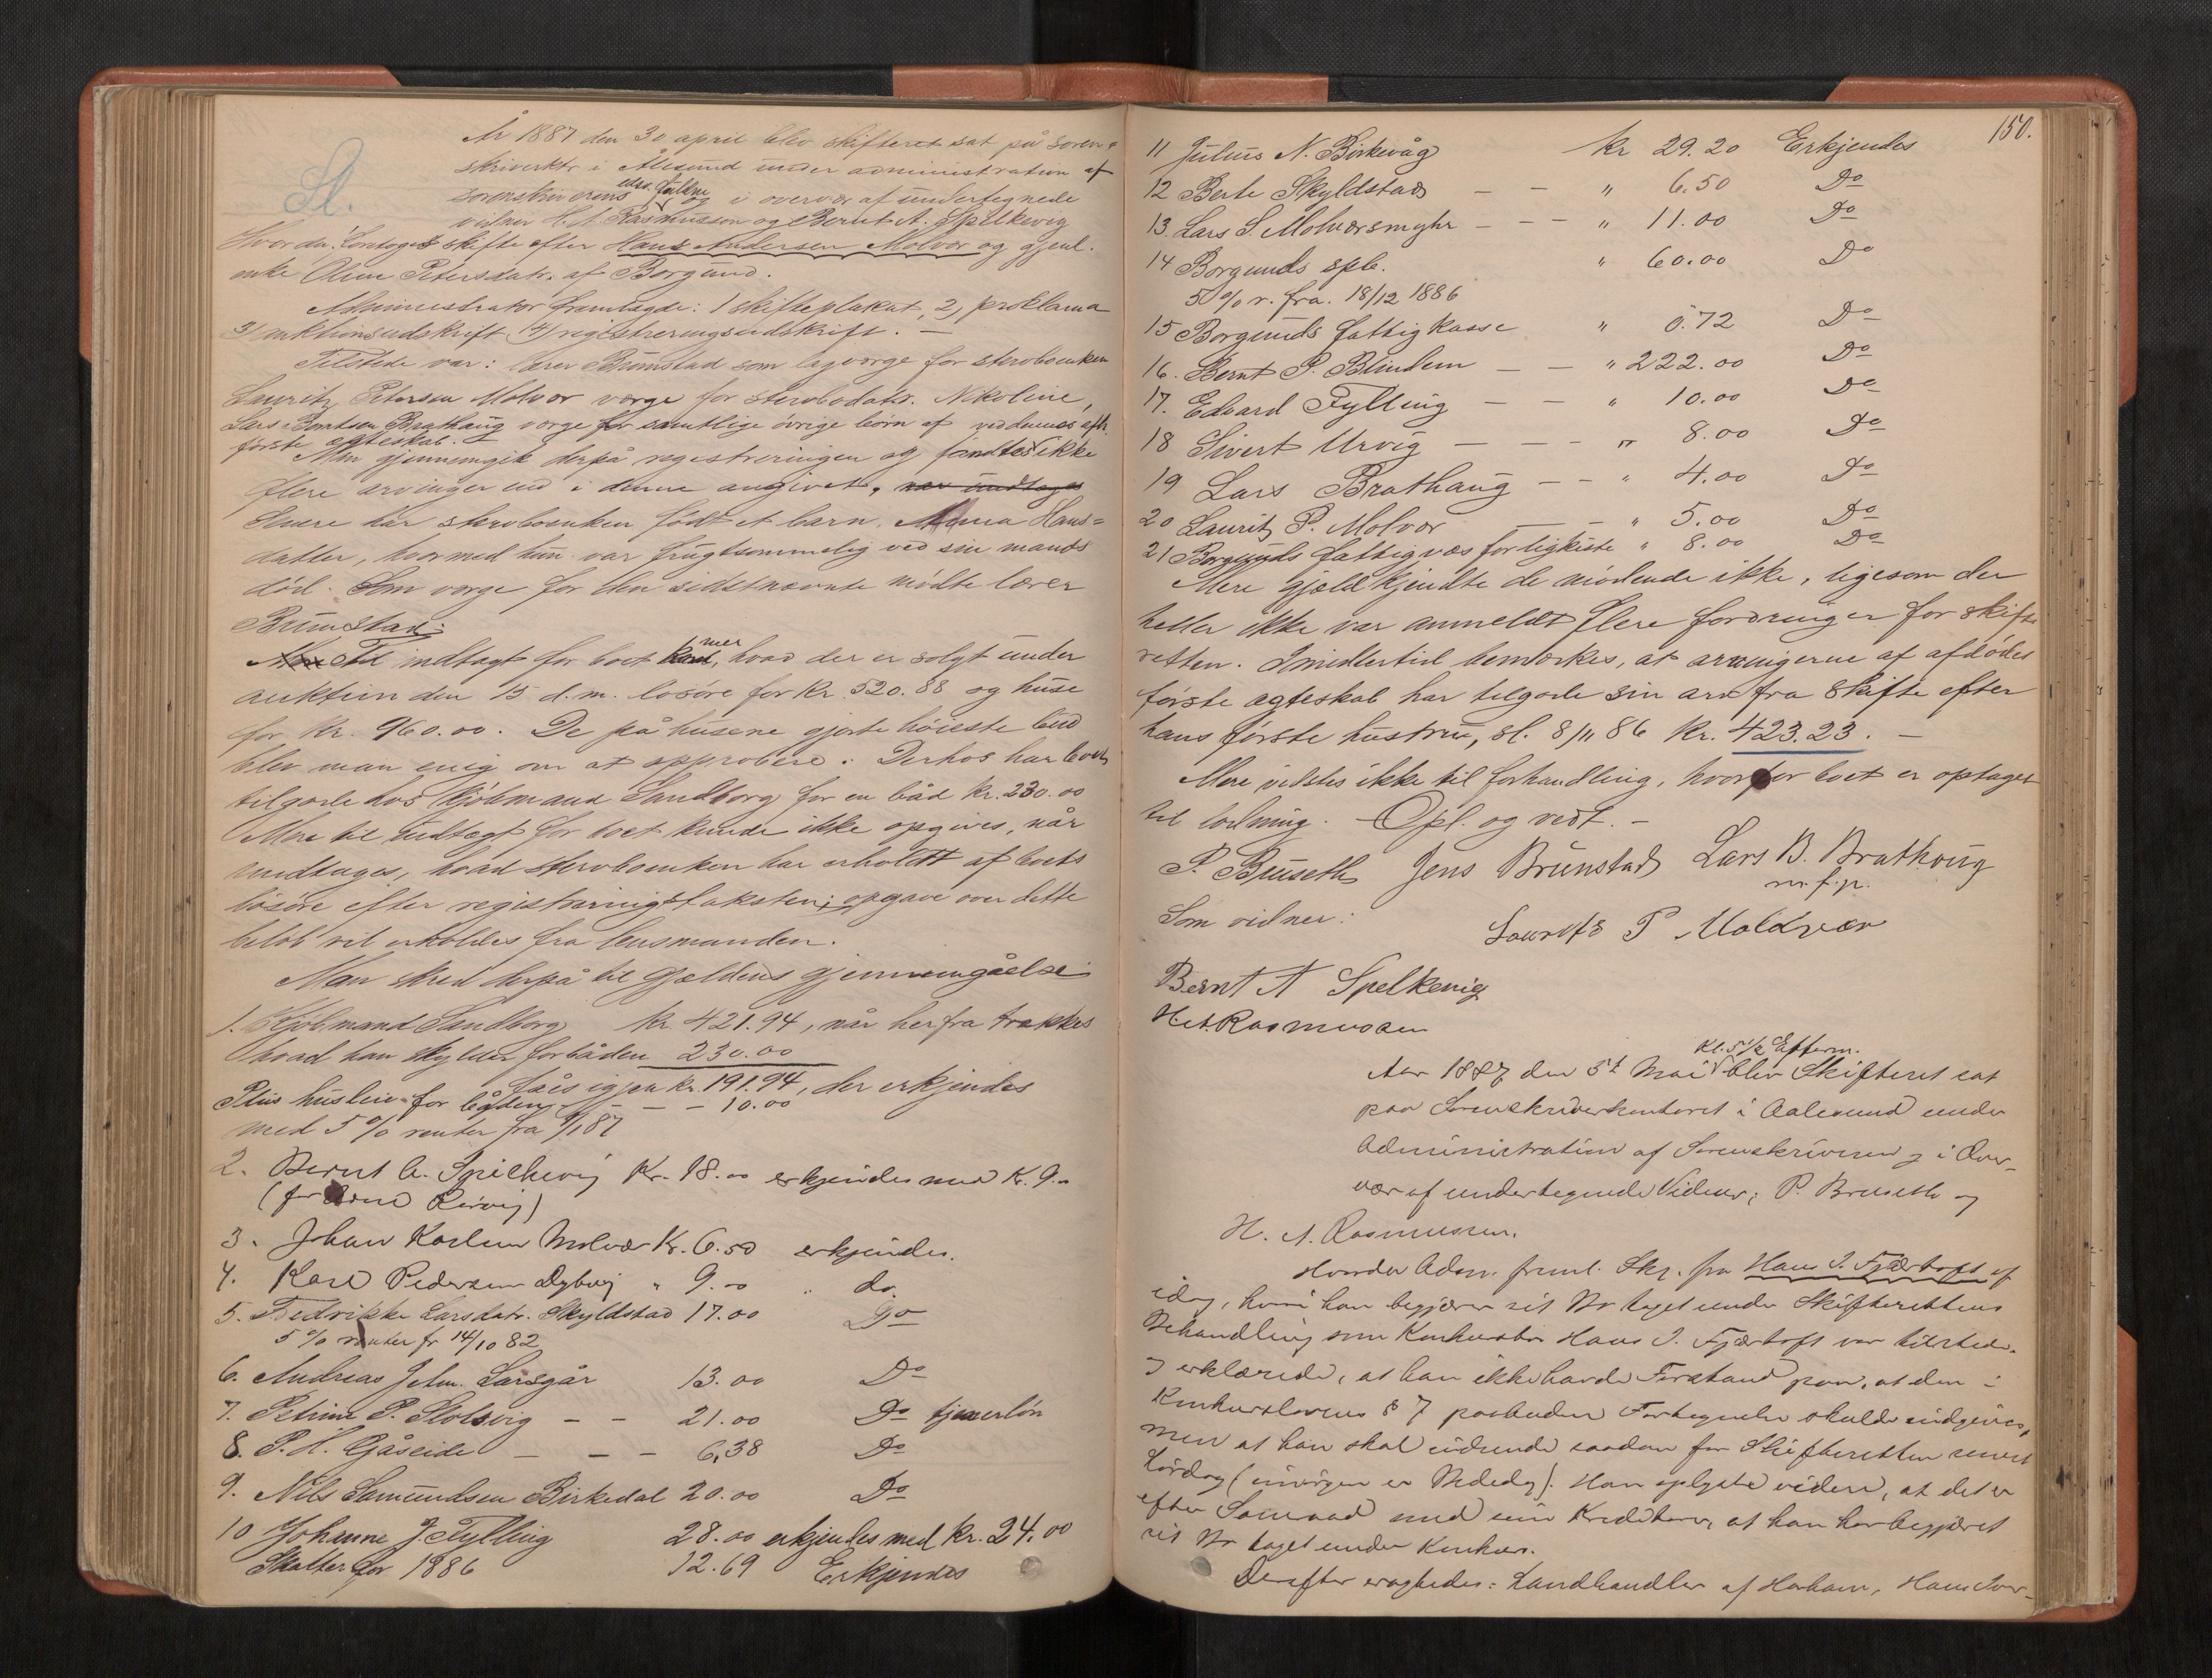 År 1887 den 30 april blev skifteret sat på soren-
skriverktr i Ålesund under administration af
sorenskriverens edsv. fuldm og i overvær af undertegnede
vidner H. A. Rasmussen og Bernt A. Spilkevig
Hvorda: Foretoges skifte efter Hans Andersen Molvær og gjenl.
enke Oline Petersdatr. af Borgund.
Administrator fremlagde: 1 skifteplakat, 2) proklama
3) auktionsudskrift 4) registreringsudskrift. —
Tilstede var: lærer Brunstad som lagværge for sterboenken
Laurits Petersen Molvær værge for sterbodatr. Nikoline,
Lars Berntsen Brathaug værge for samtlige øvrige børn af vedkommendes
første ægteskab. —
Man gjennemgik derpå registreringen og fandtes ikke
flere arvinger end i denne angivet, når undtages
Senere har sterboenken født et barn, Anna Hans=
datter, hvormed hun var frugtsommelig ved sin mands
död. Som værge for den sidstnævnte mödte lærer
Brunstad.
Til indtægt for boet kommer, hvad der er solgt under
auktion den 15 d.m. løsøre for kr. 520.88 og huse
for kr. 960.00. De på husene gjorte höieste bud
blev man enig om at approbere. Derhos har boet
tilgode hos kjöbmand Sandborg for en båd kr. 230.00
Mere til indtægt for boet kunde ikke opgives, når
undtages, hvad sterboenken har erholdt af boets
lösöre efter registreringstaksten; opgave over dette
belöb vil erholdes fra lensmanden.
Man skred derpå til gjældens gjennemgåelse
1. Kjöbmand Sandborg kr. 421.94, når herfra trækkes
hvad han skylder for båden 230.00
fåes igjen kr. 191.94, der erkjendes
Plus husleie for båden — — — 10.00
med 5 % renter fra 1/1 87
2. Bernt A. Spilkevig Kr. 18.00 erkjendes med Kr. 9.00
3. Johan Karlsen Molvær Kr. 6.50 erkjendes.
4. Karl Pedersen Dybvig " 9.00 " do.
5. Fredrikke Larsdatr. Skyldstad 17.00 Do
5 % renter fr 14/10 82
6. Andreas John. Larsgår 13.00 Do
7. Petrine P. Slotsvig — — 21.00 Do tjenerlön
8. P. H. Gåseide — — — 6,38 Do
9. Nils Samundsen Birkedal 20.00 Do
10 Johanne J. Fylling 28.00 erkjendes med kr. 24.00
Skatter for 1886 12.69 Erkjendes
150.
11 Julius N. Birkevåg kr 29.20 Erkjendes
12 Berte Skyldstad — — " 6.50 Do
13. Lars S. Molværsmyhr — — " 11.00 Do
14 Borgunds spb. " 60.00 Do
5 % r. fra. 18/12 1886
15 Borgunds fattigkasse " 0.72 Do
16. Bernt P. Blindem — — " 222.00 Do
17. Edvard Fylling — — " 10.00 Do
18 Sivert Urvig — — — " 8.00 Do
19 Lars Brathaug — — " 4.00 Do
20 Laurits P. Molvær — — " 5.00 Do
21 Borgunds fattigvæs for ligkiste " 8.00 Do
Mere gjæld kjendte de mödende ikke, ligesom der
heller ikke var anmeldt flere fordringer for skifte
retten. Imidlertid bemærkes, at arvingerne af afdödes
förste ægteskab har tilgode sin arv fra skifte efter
hans förste hustru, sl. 8/11 86 kr. 423.23. —
Mere vidstes ikke til forhandling, hvorfor boet er optaget
til lodning. — Opl. og vedt. —
P. Bruseth Jens Brunstad Lars B. Brathoug
m. f. p.
Som vidner: Laurits P Moldvær
Bernt A Spelkevig
H. A. Rasmussen
Aar 1887 den 5te Mai Kl. 5 1/2 Efterm. blev Skifteret sat
paa Sorenskriverkontoret i Aalesund under
Administration af Sorenskriveren og i Over-
vær af undertegnede Vidner; P. Bruseth og
H. A. Rasmussen.
Hvorda Adm. freml. Skr. fra Hans I. Fjærtoft af
idag, hvori han begjærer sit Bo taget under Skifterettens
Behandling som Konkursbo. Hans I. Fjærtoft var tilstede.
og erklærede, at han ikke havde Forstand paa, at den i
Konkurslovens § 7 paabudne Fortegnelse skulde indgives,
men at han skal indsende saadan for Skifteretten senest
Lördag (imorgen er Bededag). Han oplyste videre, at det er
efter Samraad med sine Kreditorer, at han har begjæret
sit Bo taget under Konkurs.
Derefter eragtedes: Landhandler af Harham, Hans Iver-